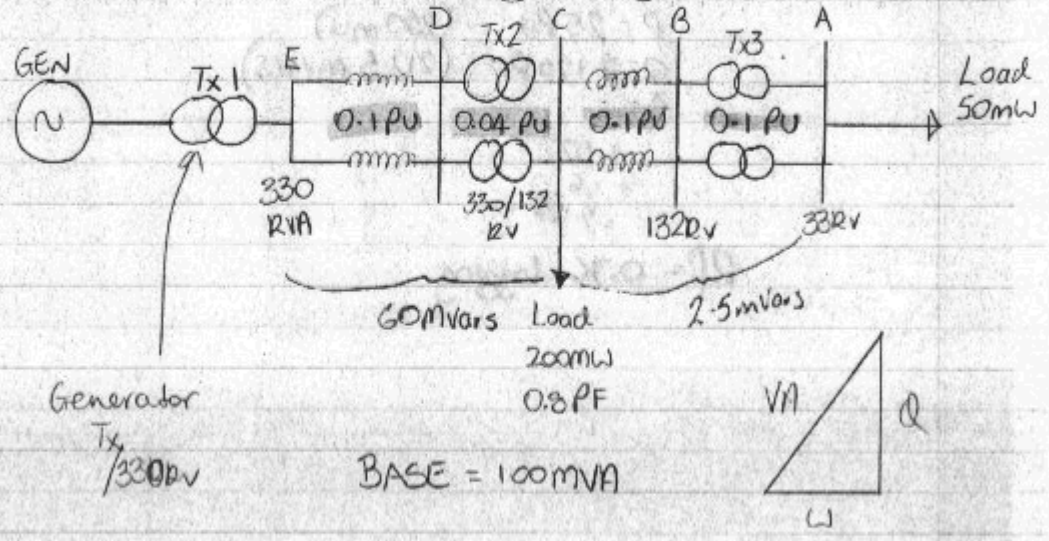 D
C
B
A
GEN
Tx 1
E
Tx2
Tx3
Load
50mW
~
0.1PU
0.04 PU
0.1PU
0.1PU
330
RVA
330/132
RV
132RV
33RV
60MVars
Load
200mW
0.8PF
2.5mvars
Generator
Tx
/330RV
BASE = 100MVA
VA
Q
W